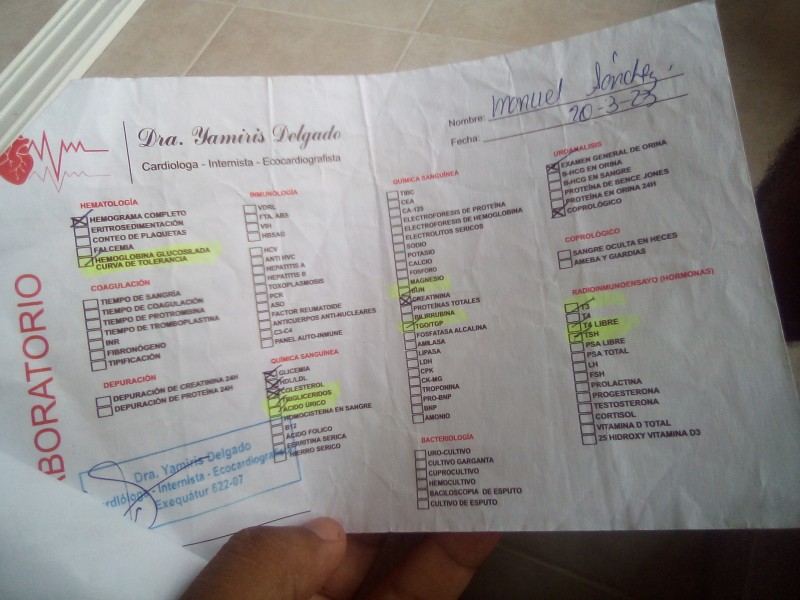 Dra. Yamiris Delgado
Cardiologa - Internista - Ecocardiografista
Nombre: Manuel Sánchez
Fecha: 20-3-23
LABORATORIO
HEMATOLOGÍA
HEMOGRAMA COMPLETO
ERITROSEDIMENTACIÓN
CONTEO DE PLAQUETAS
FALCEMIA
HEMOGLOBINA GLUCOSILADA
CURVA DE TOLERANCIA
COAGULACIÓN
TIEMPO DE SANGRÍA
TIEMPO DE COAGULACIÓN
TIEMPO DE PROTROMBINA
TIEMPO DE TROMBOPLASTINA
INR
FIBRONÓGENO
TIPIFICACIÓN
DEPURACIÓN
DEPURACIÓN DE CREATININA 24H
DEPURACIÓN DE PROTEÍNA 24H
INMUNOLOGÍA
VDRL
FTA. ABS
VIH
HBSAG
HCV
ANTI HVC
HEPATITIS A
HEPATITIS B
TOXOPLASMOSIS
PCR
ASO
FACTOR REUMATOIDE
ANTICUERPOS ANTI-NUCLEARES
C3-C4
PANEL AUTO-INMUNE
QUÍMICA SANGUÍNEA
GLICEMIA
HDL/LDL
COLESTEROL
TRIGLICERIDOS
ÁCIDO ÚRICO
HOMOCISTEINA EN SANGRE
B12
ÁCIDO FOLICO
FERRITINA SERICA
HIERRO SERICO
QUÍMICA SANGUÍNEA
TIBC
CEA
CA-125
ELECTROFORESIS DE PROTEÍNA
ELECTROFORESIS DE HEMOGLOBINA
ELECTROLITOS SERICOS
SODIO
POTASIO
CALCIO
FOSFORO
MAGNESIO
BUN
CREATININA
PROTEÍNAS TOTALES
BILIRRUBINA
TGO/TGP
FOSFATASA ALCALINA
AMILASA
LIPASA
LDH
CPK
CK-MG
TROPONINA
PRO-BNP
BNP
AMONIO
BACTERIOLOGÍA
URO-CULTIVO
CULTIVO GARGANTA
CUPROCULTIVO
HEMOCULTIVO
BACILOSCOPIA DE ESPUTO
CULTIVO DE ESPUTO
UROANALISIS
EXAMEN GENERAL DE ORINA
B-HCG EN ORINA
B-HCG EN SANGRE
PROTEÍNA DE BENCE JONES
PROTEÍNA EN ORINA 24H
COPROLÓGICO
COPROLÓGICO
SANGRE OCULTA EN HECES
AMEBA Y GIARDIAS
RADIOINMUNDOENSAYO (HORMONAS)
T3
T4
T4 LIBRE
TSH
PSA LIBRE
PSA TOTAL
LH
FSH
PROLACTINA
PROGESTERONA
TESTOSTERONA
CORTISOL
VITAMINA D TOTAL
25 HIDROXY VITAMINA D3
Dra. Yamiris Delgado
Cardióloga - Internista - Ecocardiografista
Exequátur 622-07